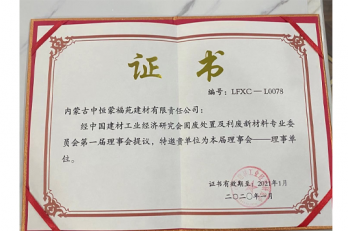 证 书
编号：LFXC—L0078
内蒙古中恒蒙福苑建材有限责任公司：
经中国建材工业经济研究会固废处置及利废新材料专业委
员会第一届理事会提议，特邀贵单位为本届理事会——理事单
位。
证书有效期至：2021年1月
二〇二〇年一月